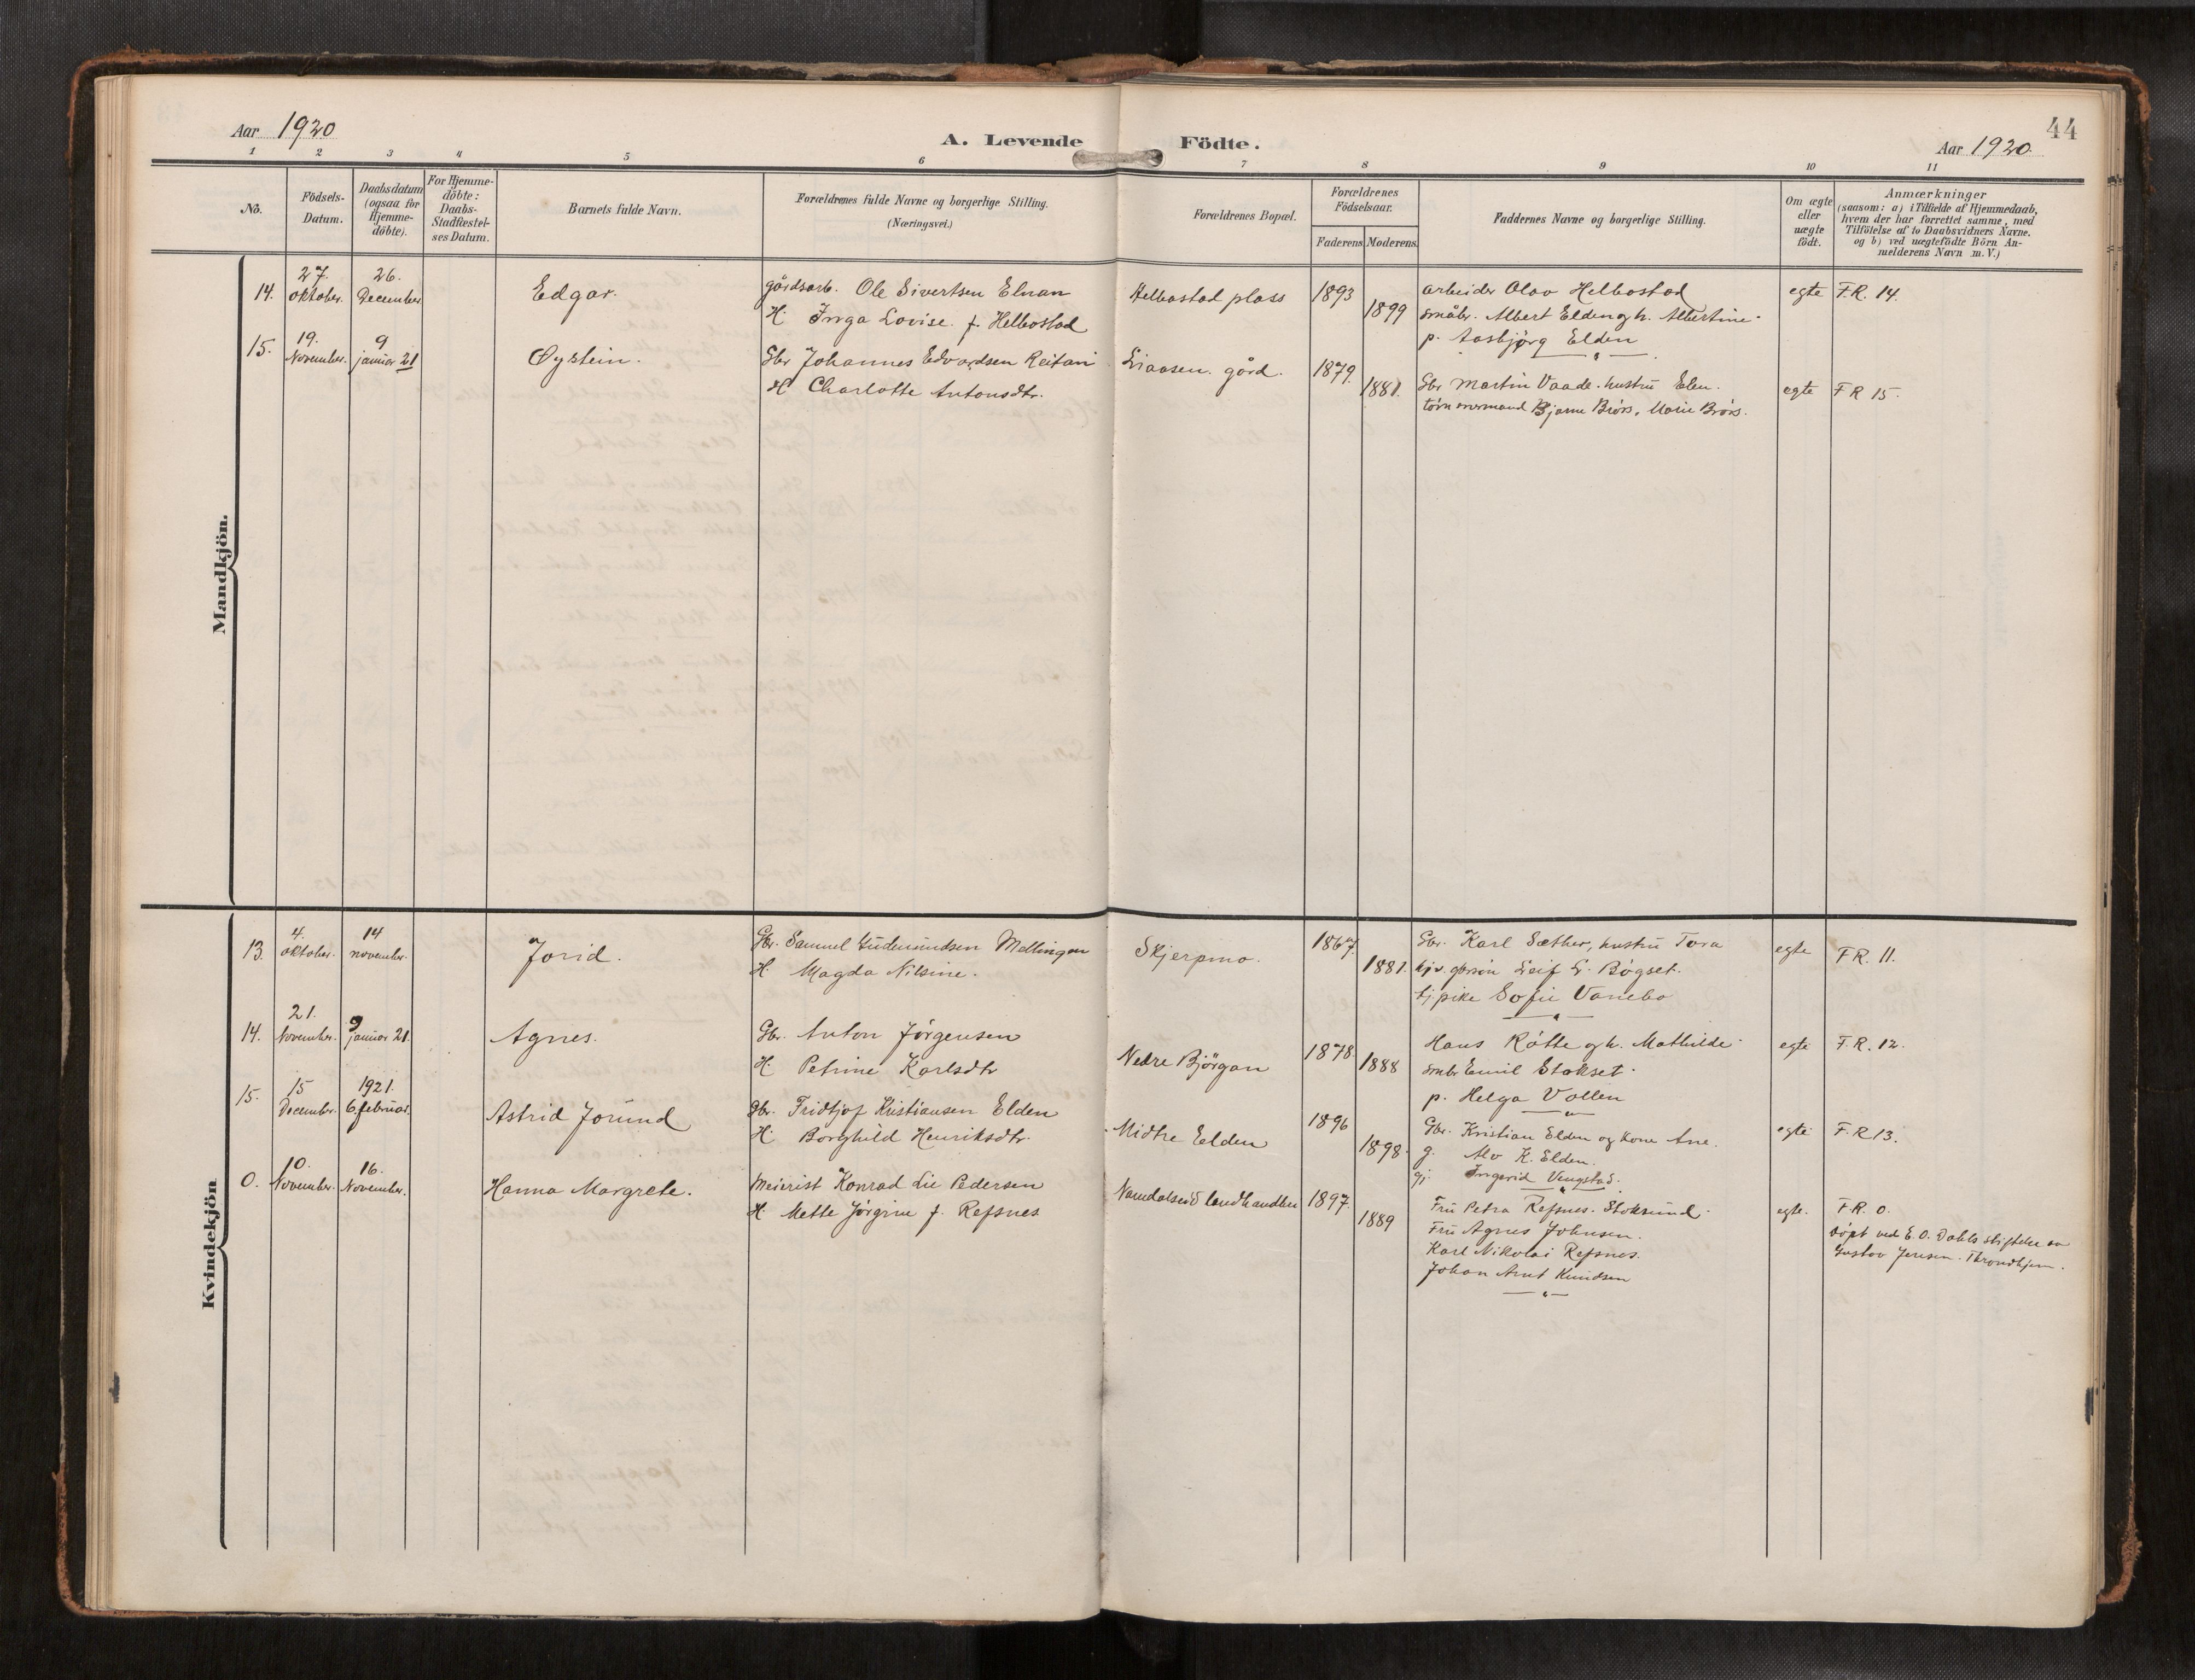 Aar 1920
A. Levende Födte.
44
Aar 1920.
1 2 3 4 5 6 7 8 9 10 11
No.
Födsels-
Datum.
Daabsdatum
(ogsaa for
Hjemme-
döbte).
For Hjemme-
döbte:
Daabs-
Stadfæstel-
ses Datum.
Barnets fulde Navn.
Forældrenes fulde Navne og borgerlige Stilling.
(Næringsvei.)
Forældrenes Bopæl.
Forældrenes
Födselsaar.
Faderens Moderens
Faddernes Navne og borgerlige Stilling.
Om ægte
eller
uægte
födt.
Anmærkninger
(saasom: a) i Tilfælde af Hjemmedaab,
hvem der har forrettet samme, med
Tilföielse af to Daabsvidners Navne.
og b) ved uægtefödte Börn An-
melderens Navn m. V.)
Mandkjön.
14.
27.
oktober.
26.
December
Edgar.
gårdsarb. Ole Sivertsen Elnan
H. Inga Lovise f. Helbostad
Helbostad plass
1893
1899
arbeider Olav Helbostad
småbr. Albert Elden og h. Albertine.
p. Aasbjørg Elden
egte
F.R. 14.
15.
19.
November.
9
januar 21
Øystein.
Gbr Johannes Edvardsen Reitan
H Charlotte Antonsdtr.
Liaasen. gård.
1879.
1881.
Gbr Martin Vaade. hustru Elen.
Bjarne Brørs, Marie Brørs.
egte
F R 15.
Kvindekjön
13.
4.
oktober.
14
november.
Jorid.
Gbr. Samuel Gudmundsen Mellingen
H. Magda Nilsine.
Skjerpmo.
1867.
1881.
Gbr. Karl Sæther, hustru Tora
Leif L. Bøgset.
tj pike Sofie Vanebo
egte
FR. 11.
14.
21.
November.
9
januar 21.
Agnes.
Gbr. Anton Jørgensen
H. Petrine Karlsdtr
Nedre Bjørgan
1878.
1888
Hans Råtte og h. Mathilde.
smbr Emil Stokset.
p. Helga Vollen
egte
F.R. 12.
15.
15
December.
1921.
6. februar.
Astrid Jorund
gbr. Fridtjof Kristiansen Elden
H. Borghild Henriksdtr.
Midtre Elden
1896
1898.
Gbr. Kristian Elden og kone Ane.
g. Alv K. Elden.
gj. Ingerid Vengstad.
egte
F.R 13.
0.
10.
November.
16.
November.
Hanna Margrete.
Meierist Konrad Lie Pedersen
H. Mette Jørgine f. Refsnes
Namdalseid landhandleri
1897.
1889
Fru Petra Refsnes. Stoksund.
Fru Agnes Johnsen.
Karl Nikolai Refsnes.
Johan Arnt Knudsen
egte.
F.R. 0.
døpt ved E. O. Dahls stiftelse av
Gustav Jensen. Throndhjem.